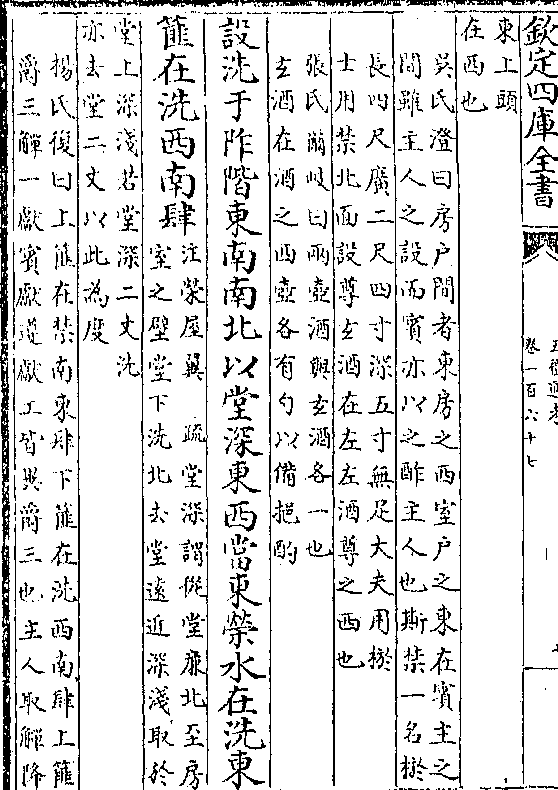 欽定四庫全書
五禮通考
卷一百六十七
東上頭
在西也
吳氏澄曰房戶間者東房之西室戶之東在賓主之
間雖主人之設而賓亦以之酢主人也斯禁一名棜
長四尺廣二尺四寸深五寸無足大夫用棜
士用禁北面設尊玄酒在左左酒尊之西也
張氏爾岐曰兩壺酒與玄酒各一也
玄酒在酒之西壺各有勺以備挹酌
設洗于阼階東南南北以堂深東西當東榮水在洗東
篚在洗西南肆
注榮屋翼 疏堂深謂從堂廉北至房
室之壁堂下洗北去堂遠近深淺取於
堂上深淺若堂深二丈洗
亦去堂二丈以此為度
楊氏復曰上篚在禁南東肆下篚在洗西南肆上篚
爵三觶一獻賓獻遵獻工皆異爵三也主人取觶降